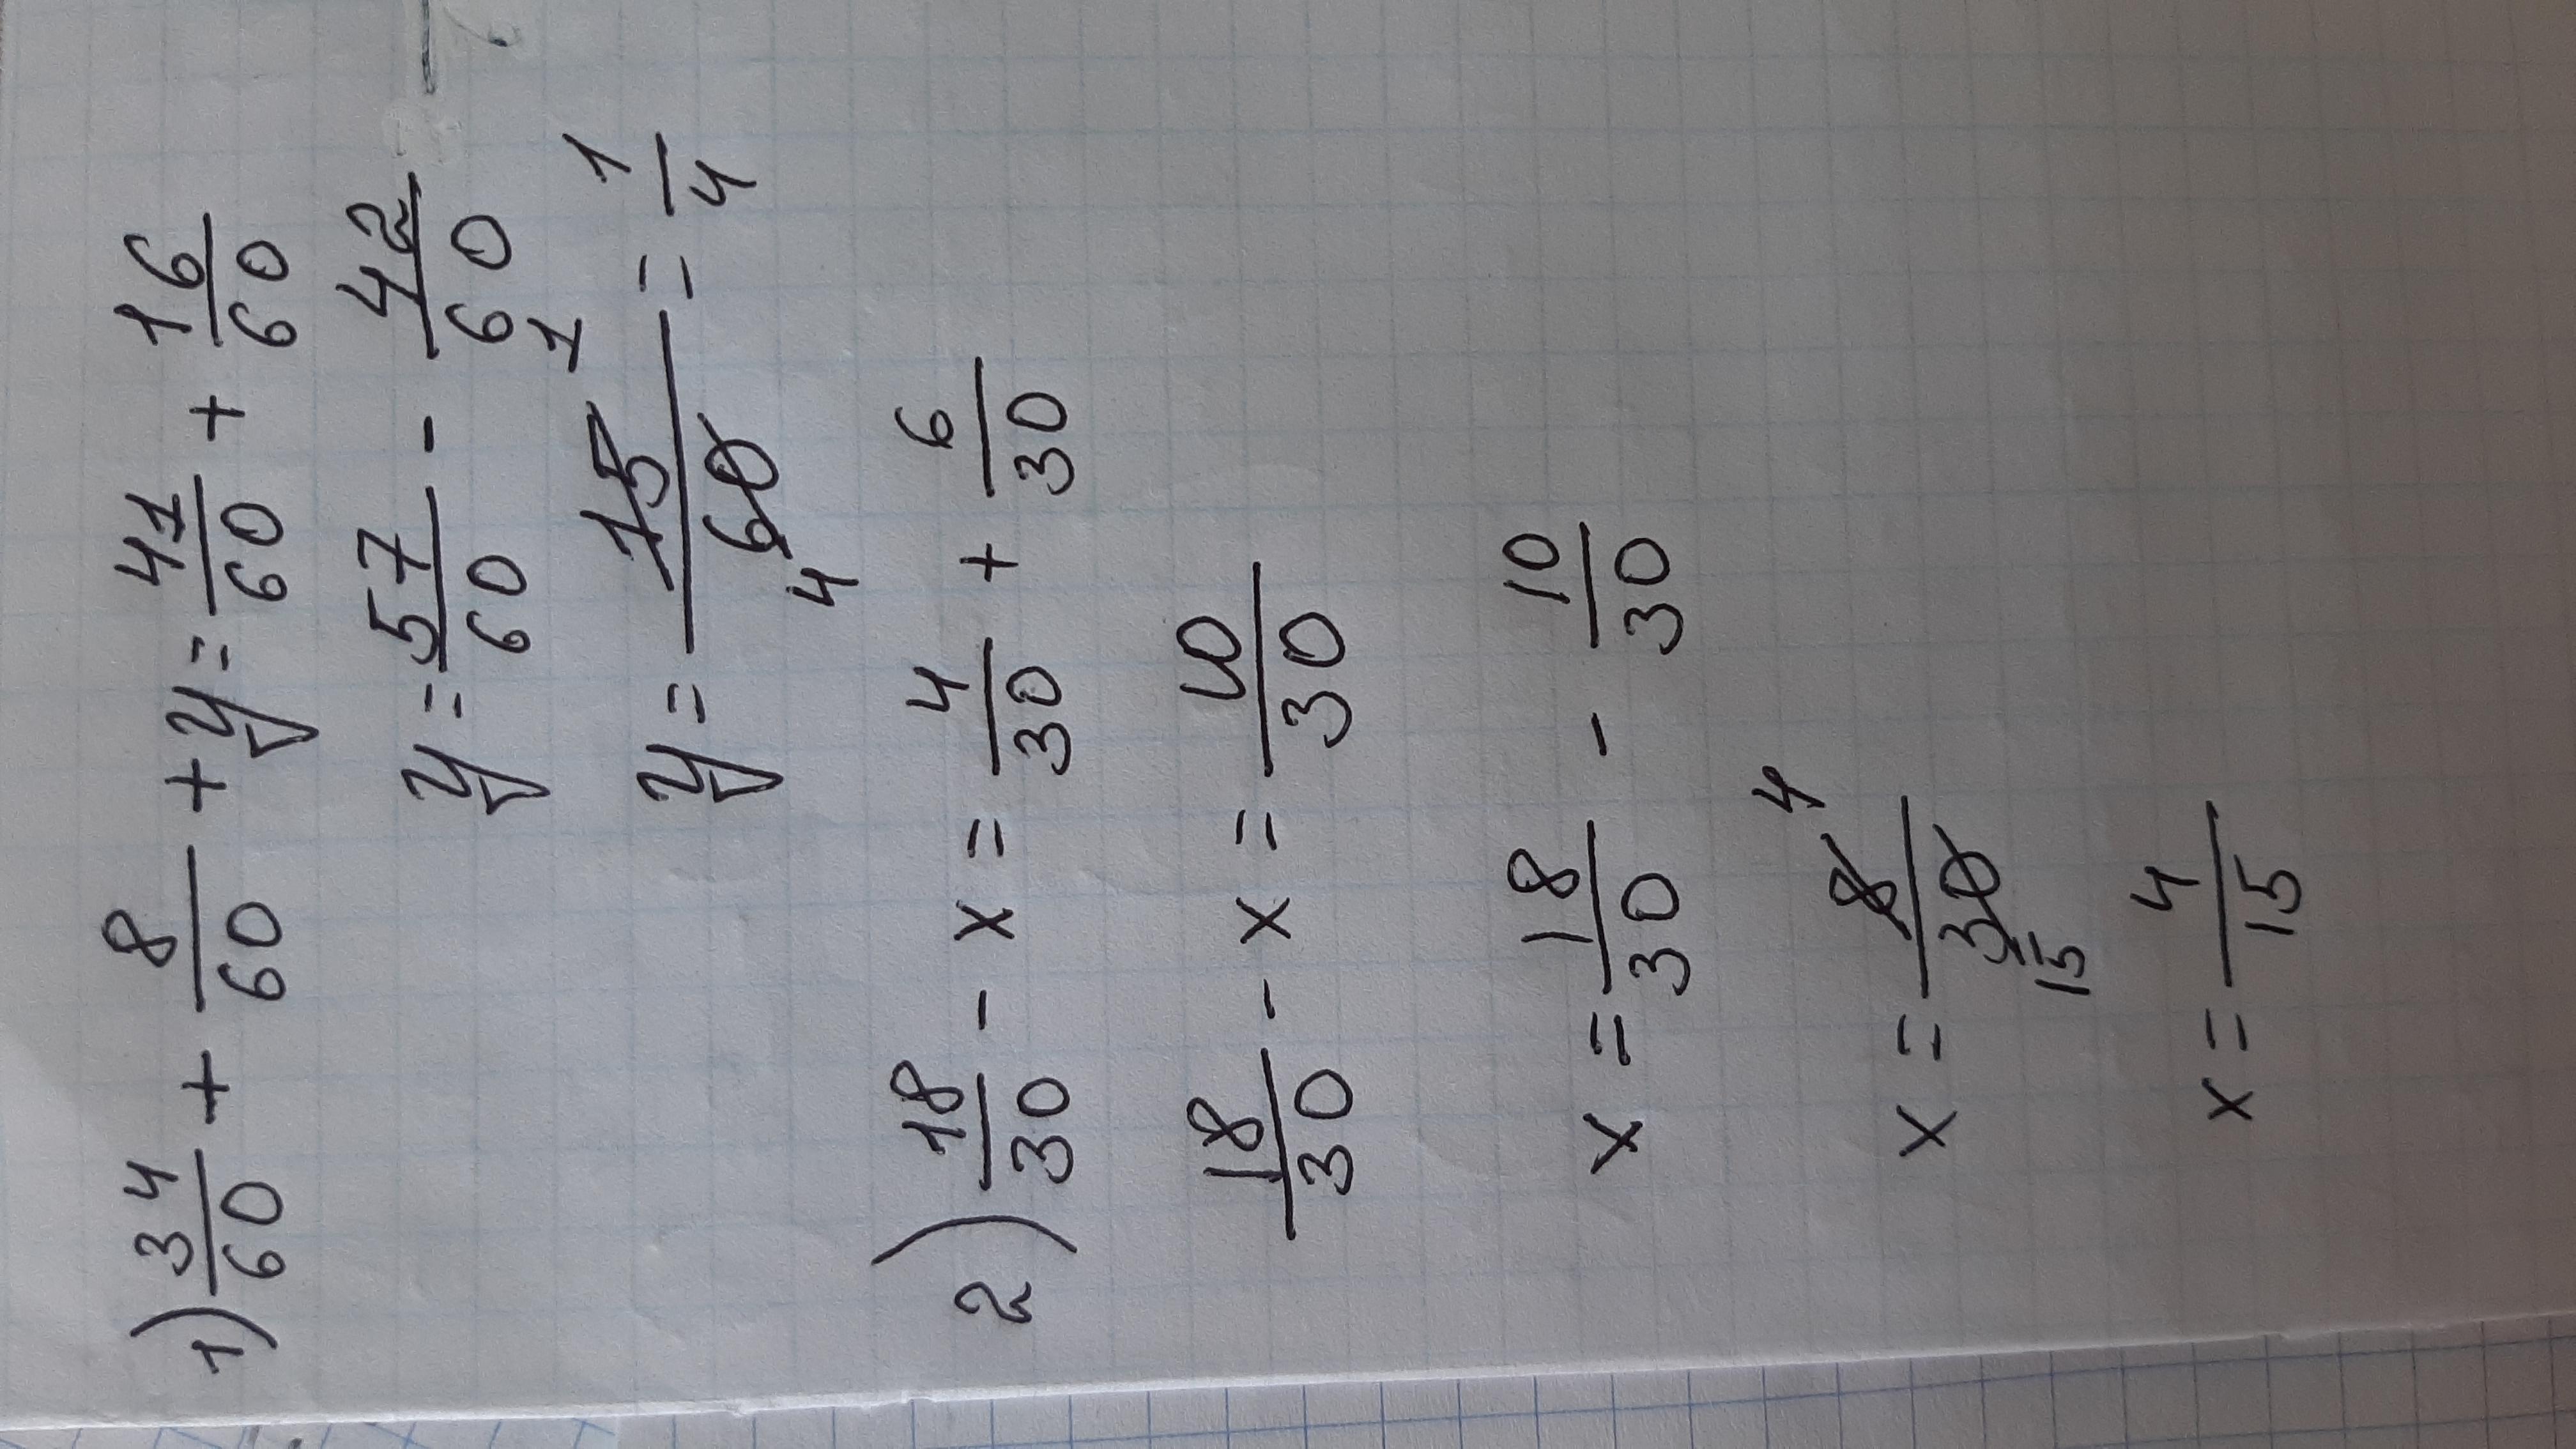 1) 34/60 + 8/60 + y = 41/60 + 16/60
y = 57/60 - 42/60
y = 15/60 = 1/4
1
4
2) 18/30 - x = 4/30 + 6/30
18/30 - x = 10/30
x = 18/30 - 10/30
x = 8/30
4
15
x = 4/15